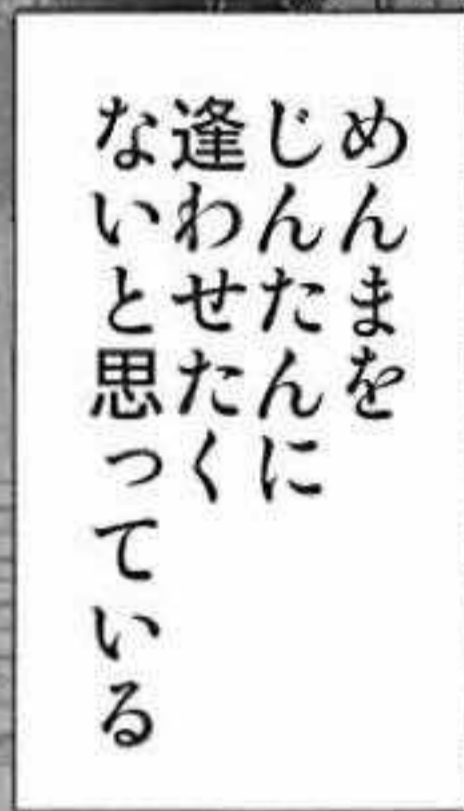 めんまを
じんたんに
逢わせたく
ないと思っている